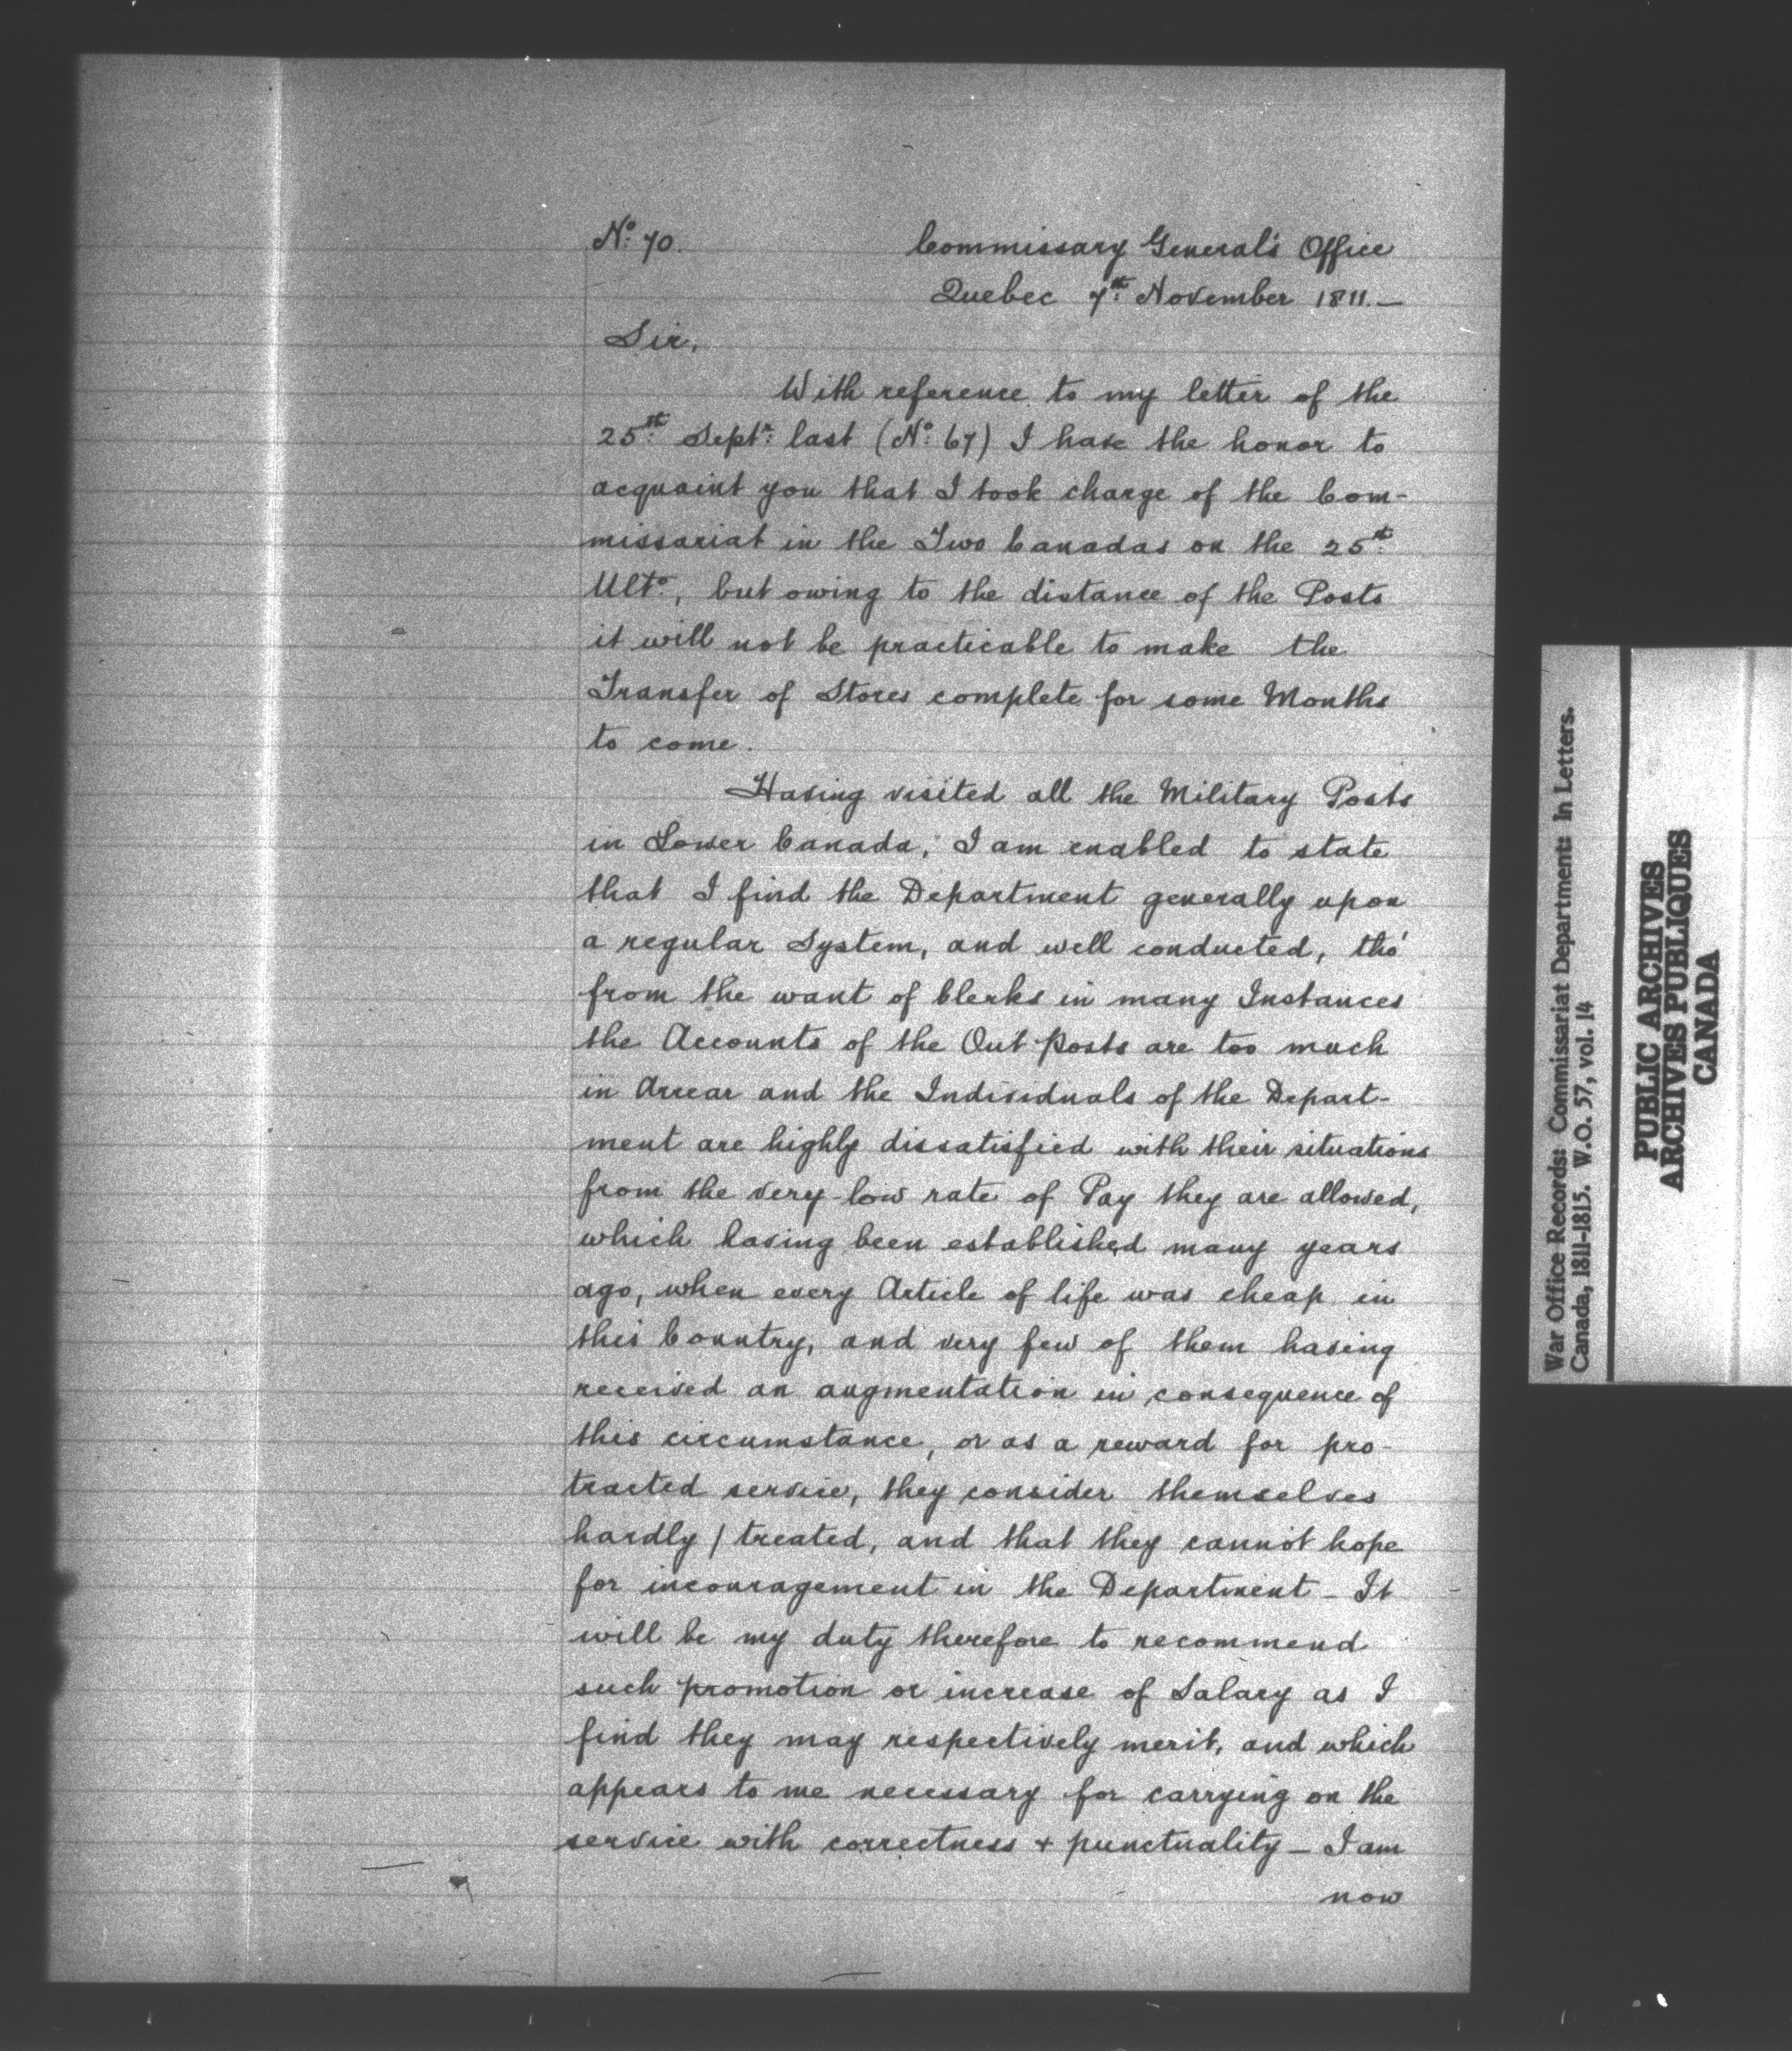 No. 70. Commissary General's Office
Quebec 7th November 1811.—
Sir,
With reference to my letter of the
25th Septr. last (No. 67) I have the honor to
acquaint you that I took charge of the Com-
missariat in the Two Canadas on the 25th
Ulto., but owing to the distance of the Posts
it will not be practicable to make the
Transfer of Stores complete for some Months
to come.
Having visited all the Military Posts
in Lower Canada, I am enabled to state
that I find the Department generally upon
a regular System, and well conducted, tho'
from the want of Clerks in many Instances
the Accounts of the Out Posts are too much
in Arrear and the Individuals of the Depart-
ment are highly dissatisfied with their situations
from the very low rate of Pay they are allowed,
which having been established many years
ago, when every Article of life was cheap in
this Country, and very few of them having
received an augmentation in consequence of
this circumstance, or as a reward for pro-
tracted service, they consider themselves
hardly / treated, and that they cannot hope
for incouragement in the Department - It
will be my duty therefore to recommend
such promotion or increase of Salary as I
find they may respectively merit, and which
appears to me necessary for carrying on the
service with correctness + punctuality - I am
now
War Office Records: Commissariat Department: In Letters.
Canada, 1811-1815. W.O. 57, vol. 14
PUBLIC ARCHIVES
ARCHIVES PUBLIQUES
CANADA